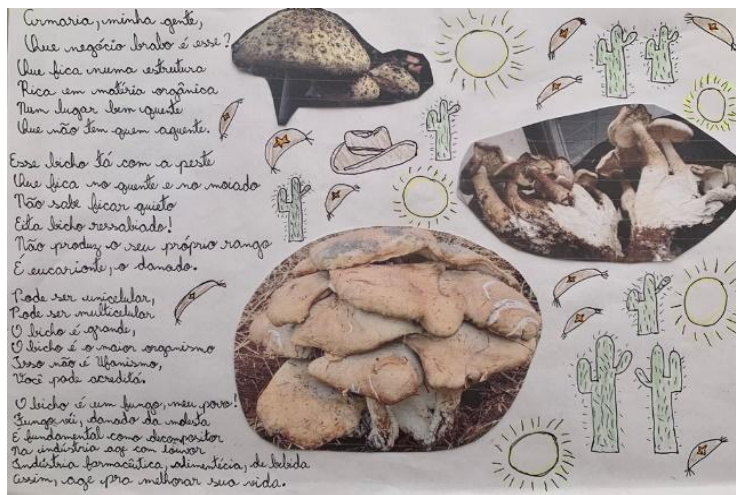 Armaria, minha gente,
Que negócio brabo é esse?
Que fica numa estrutura
Rica em matéria orgânica
Num lugar bem quente
Que não tem quem aguente.
Esse bicho tá com a peste
Que fica no quente e no moiado
Não sabe ficar quieto
Eita bicho ressabiado!
Não produz o seu próprio rango
É eucarionte, o danado.
Pode ser unicelular,
Pode ser multicelular
O bicho é grande,
O bicho é o maior organismo
Isso não é Ufanismo,
Você pode acreditá.
O bicho é um fungo, meu povo!
Fungo véi, danado da molesta
É fundamental como decompositor
Na indústria age com louvor
Indústria farmacêutica, alimentícia, de bebida
Assim, age pra melhorar sua vida.